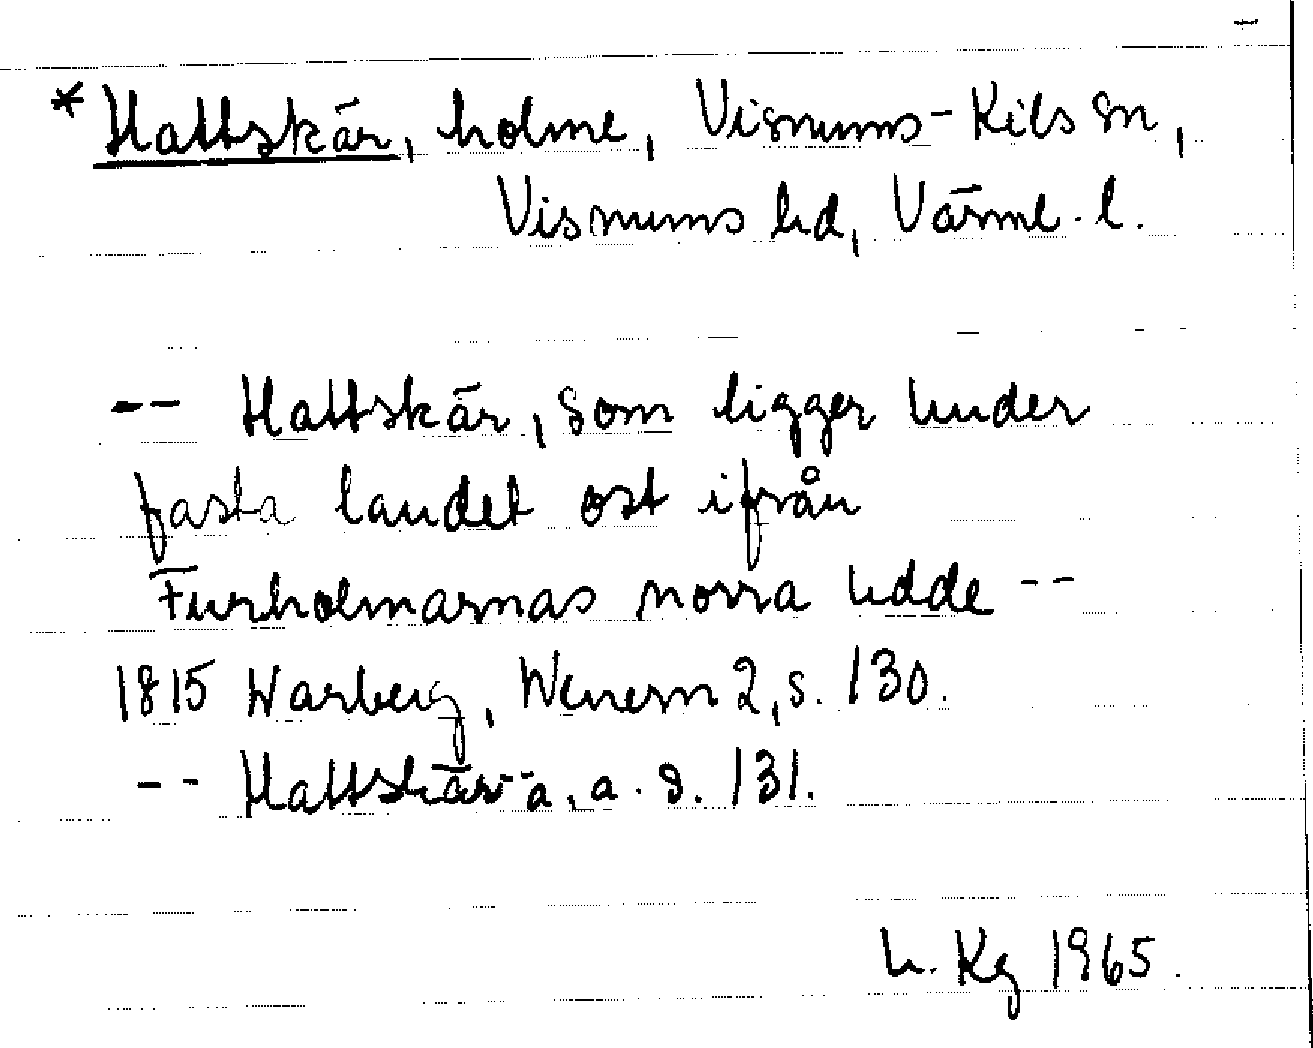 * Hattskär, holme, Visnums-Kils sn,
Visnums hd, Värml. l.
-- Hattskär, som ligger under
fasta landet ost ifrån
Furholmarnas norra udde --
1815 Warberg, Wenern 2, s. 130.
-- Hattskär -- a. a. s. 131.
L. Kg 1965.